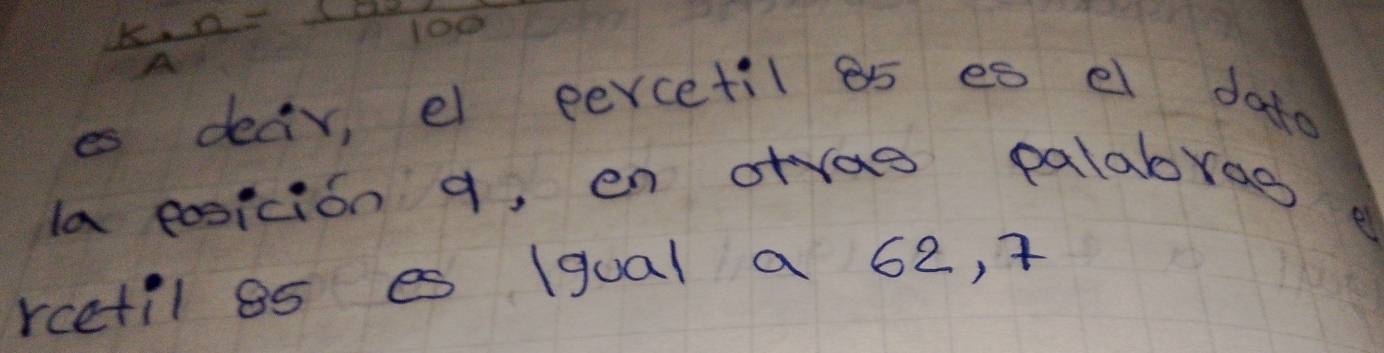 K.n =
A
100
es decir, el percetil 85 es el dato
la posición 9, en otras palabras el
rcetil 85 es Igual a 62,7